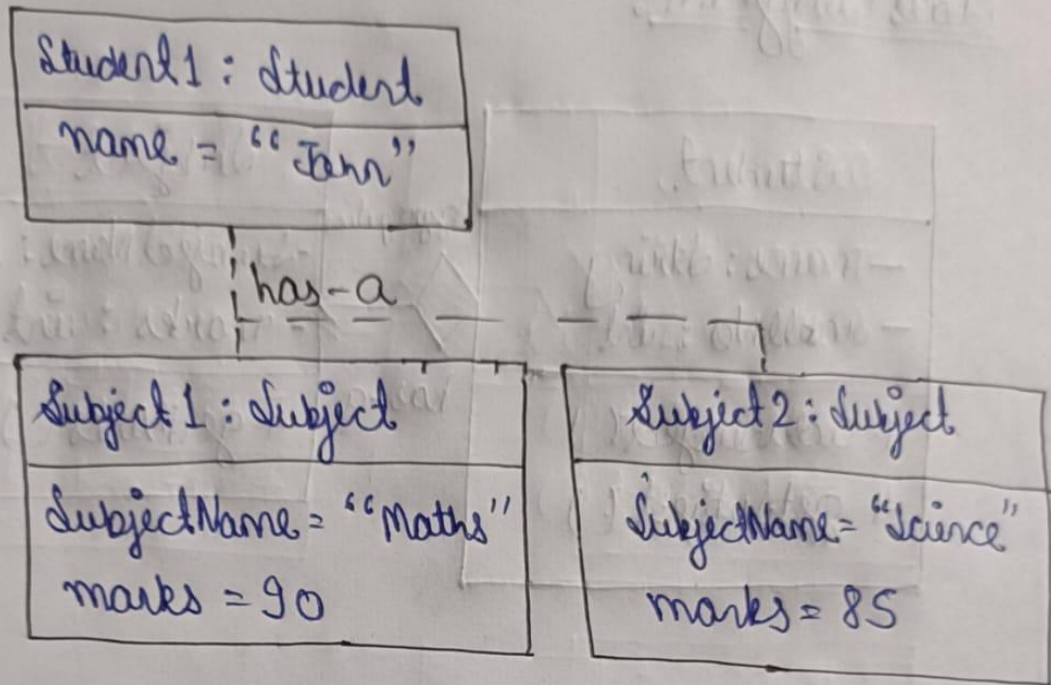 Student1 : Student
name = "Jann"
has-a
Subject1 : Subject
SubjectName = "Maths"
marks = 90
Subject2 : Subject
SubjectName = "Science"
marks = 85